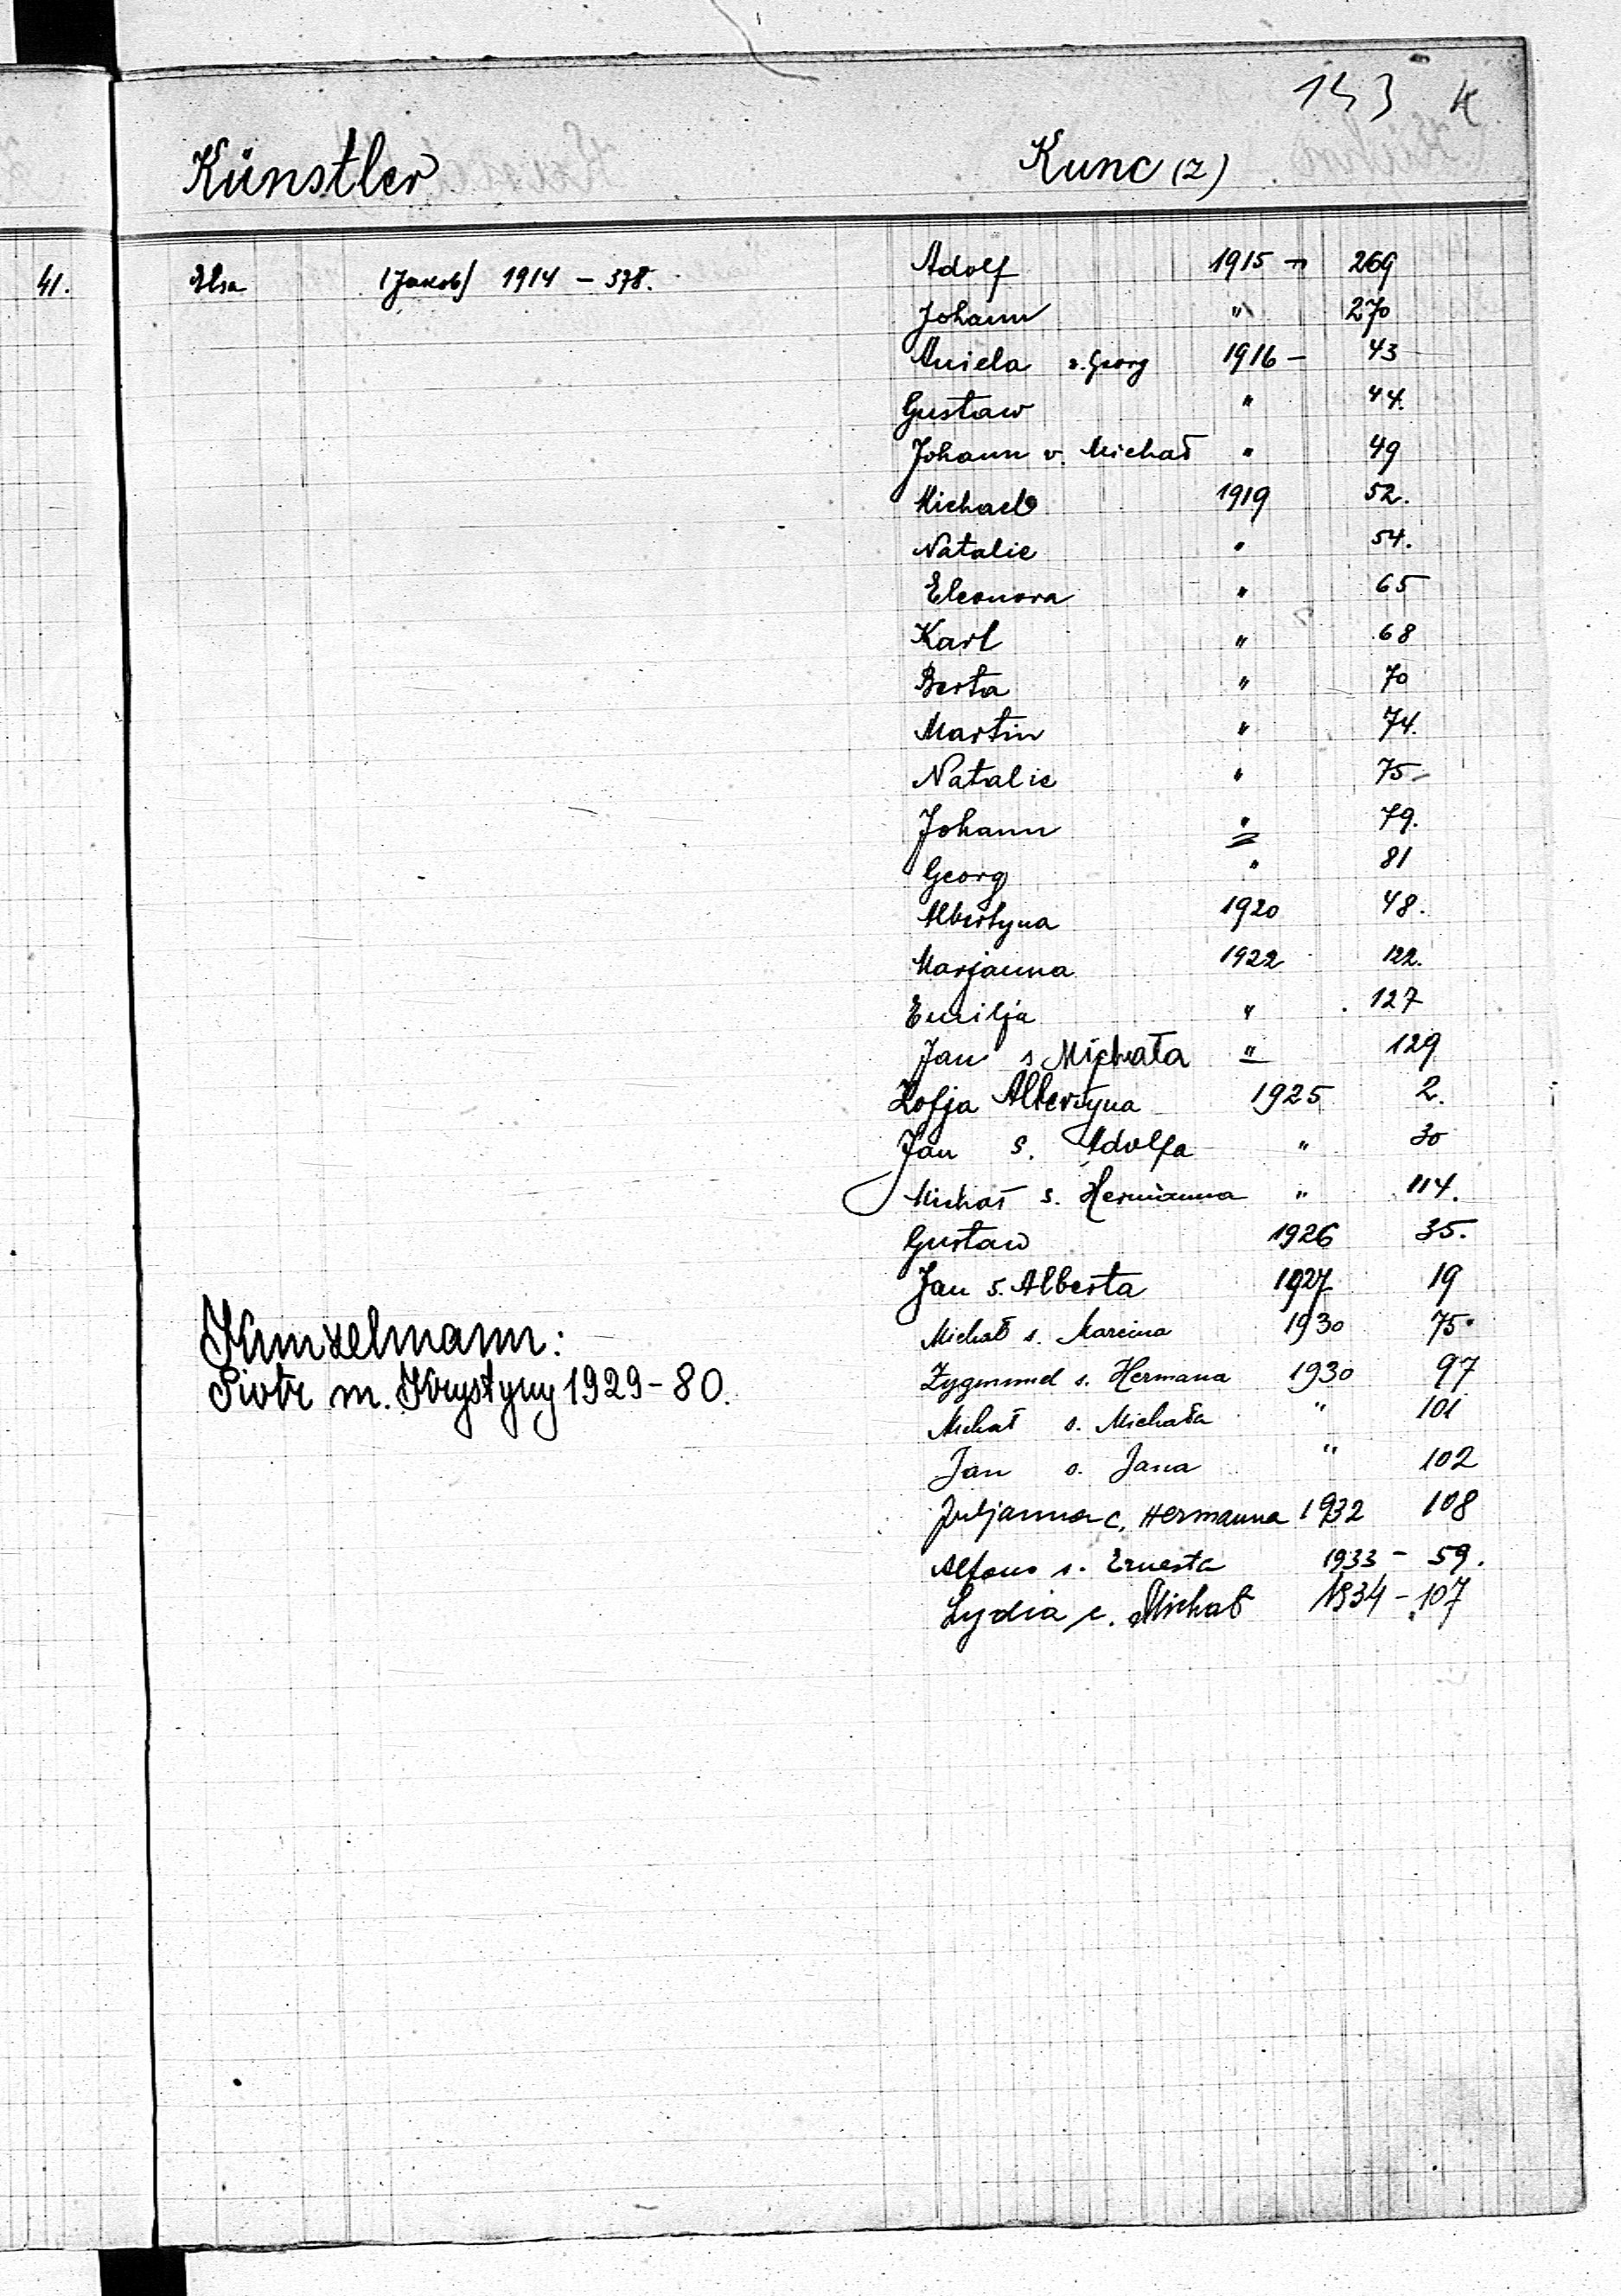 143 K
Künstler
41.
Elsa (Jakob) 1914 - 378.
Kunzelmann:
Piotr m. Krystyny 1929-80.
Kunc (z)
Adolf 1915 - 269
Johann " 270
Aniela v. Georg 1916 - 43
Gustaw " 44.
Johann v. Michał " 49
Michael 1919 52.
Natalie " 54.
Eleonora " 65
Karl " 68
Berta " 70
Martin " 74.
Natalie " 75-
Johann " 79.
Georg " 81
Albertyna 1920 48.
Marjanna 1922 122.
Emilja " 127
Jan s Michała " 129
Zofja Albertyna 1925 2.
Jan s. Adolfa " 30
Michał s. Hermanna " 114.
Gustaw 1926 35.
Jan s. Alberta 1927 19
Michał s. Marcina 1930 75.
Zygmund s. Hermana 1930 97
Michał s. Michała " 101
Jan s. Jana " 102
Juljanna c. Hermanna 1932 108
Alfons s. Ernesta 1933 - 59.
Lydia c. Michał 1934 - 107